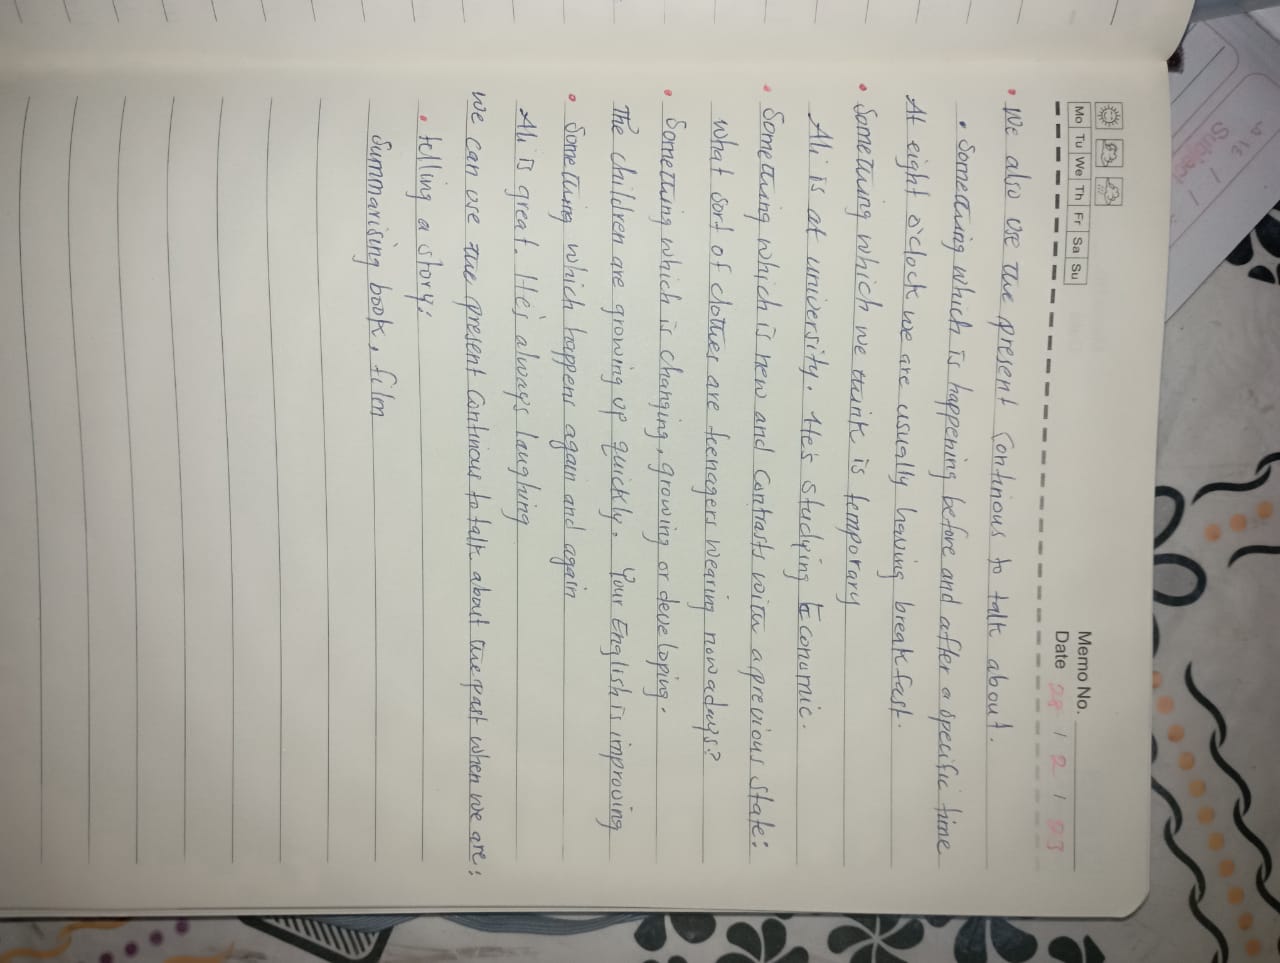 Memo No.
Mo Tu We Th Fr Sa Su
Date 28 / 2 / 03
• We also use the present Continous to talk about.
• Something which is happening before and after a specific time
At eight o'clock we are usually having breakfast.
• Something which we think is temporary
Ali is at university. He's studying Economic.
• Something which is new and contrasts with a previous state:
What sort of clothes are teenagers wearing nowadays?
• Something which is changing, growing or developing.
The children are growing up quickly. Your English is improving
• Something which happens again and again
Ali is great. He's always laughing
We can use the present Continous to talk about the past when we are:
• telling a story:
Summarising book, film
Subject